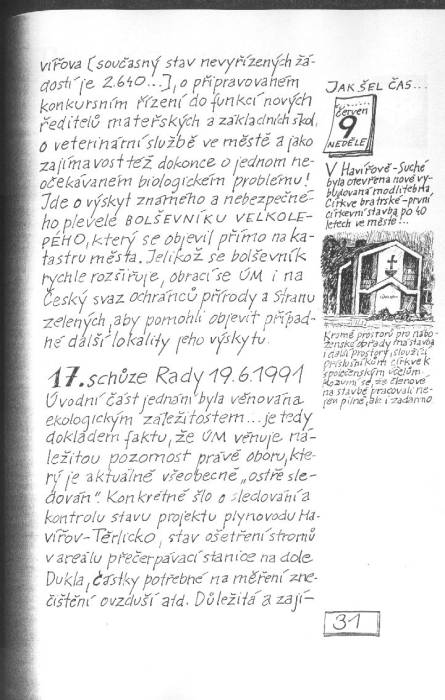 vířova (současný stav nevyřízených žá-
dostí je 2.640...), o připravovaném
konkursním řízení do funkcí nových
ředitelů mateřských a základních škol,
o veterinární službě ve městě a jako
zajímavost též dokonce o jednom ne-
očekávaném biologickém problému!
Jde o výskyt známého a nebezpečné-
ho plevele BOLŠEVNÍKU VELKOLE-
PÉHO, který se objevil přímo na ka-
tastru města. Jelikož se bolševník
rychle rozšiřuje, obrací se ÚM i na
Český svaz ochránců přírody a Stranu
zelených, aby pomohli objevit případ-
né další lokality jeho výskytu.
17. schůze Rady 19.6.1991
Úvodní část jednání byla věnována
ekologickým záležitostem... je tedy
dokladem faktu, že ÚM věnuje ná-
ležitou pozornost právě oboru, kte-
rý je aktuálně všeobecně „ostře sle-
dován". Konkrétně šlo o sledování a
kontrolu stavu projektu plynovodu Ha-
vířov-Těrlicko, stav ošetření stromů
v areálu přečerpávací stanice na dole
Dukla, částky potřebné na měření zne-
čištění ovzduší atd. Důležitá a zají-
JAK ŠEL ČAS...
červen
9
NEDĚLE
V Havířově-Suché
byla otevřena nově vy-
budovaná modlitebna
Církve bratrské - první
církevní stavba po 40
letech ve městě!..
Kromě prostorů pro nábo-
ženské obřady má stavba
i další prostory, sloužící
příslušníkům církve k
společenským účelům.
že členové
na stavbě pracovali ne-
jen pilně, ale i zadarmo
31